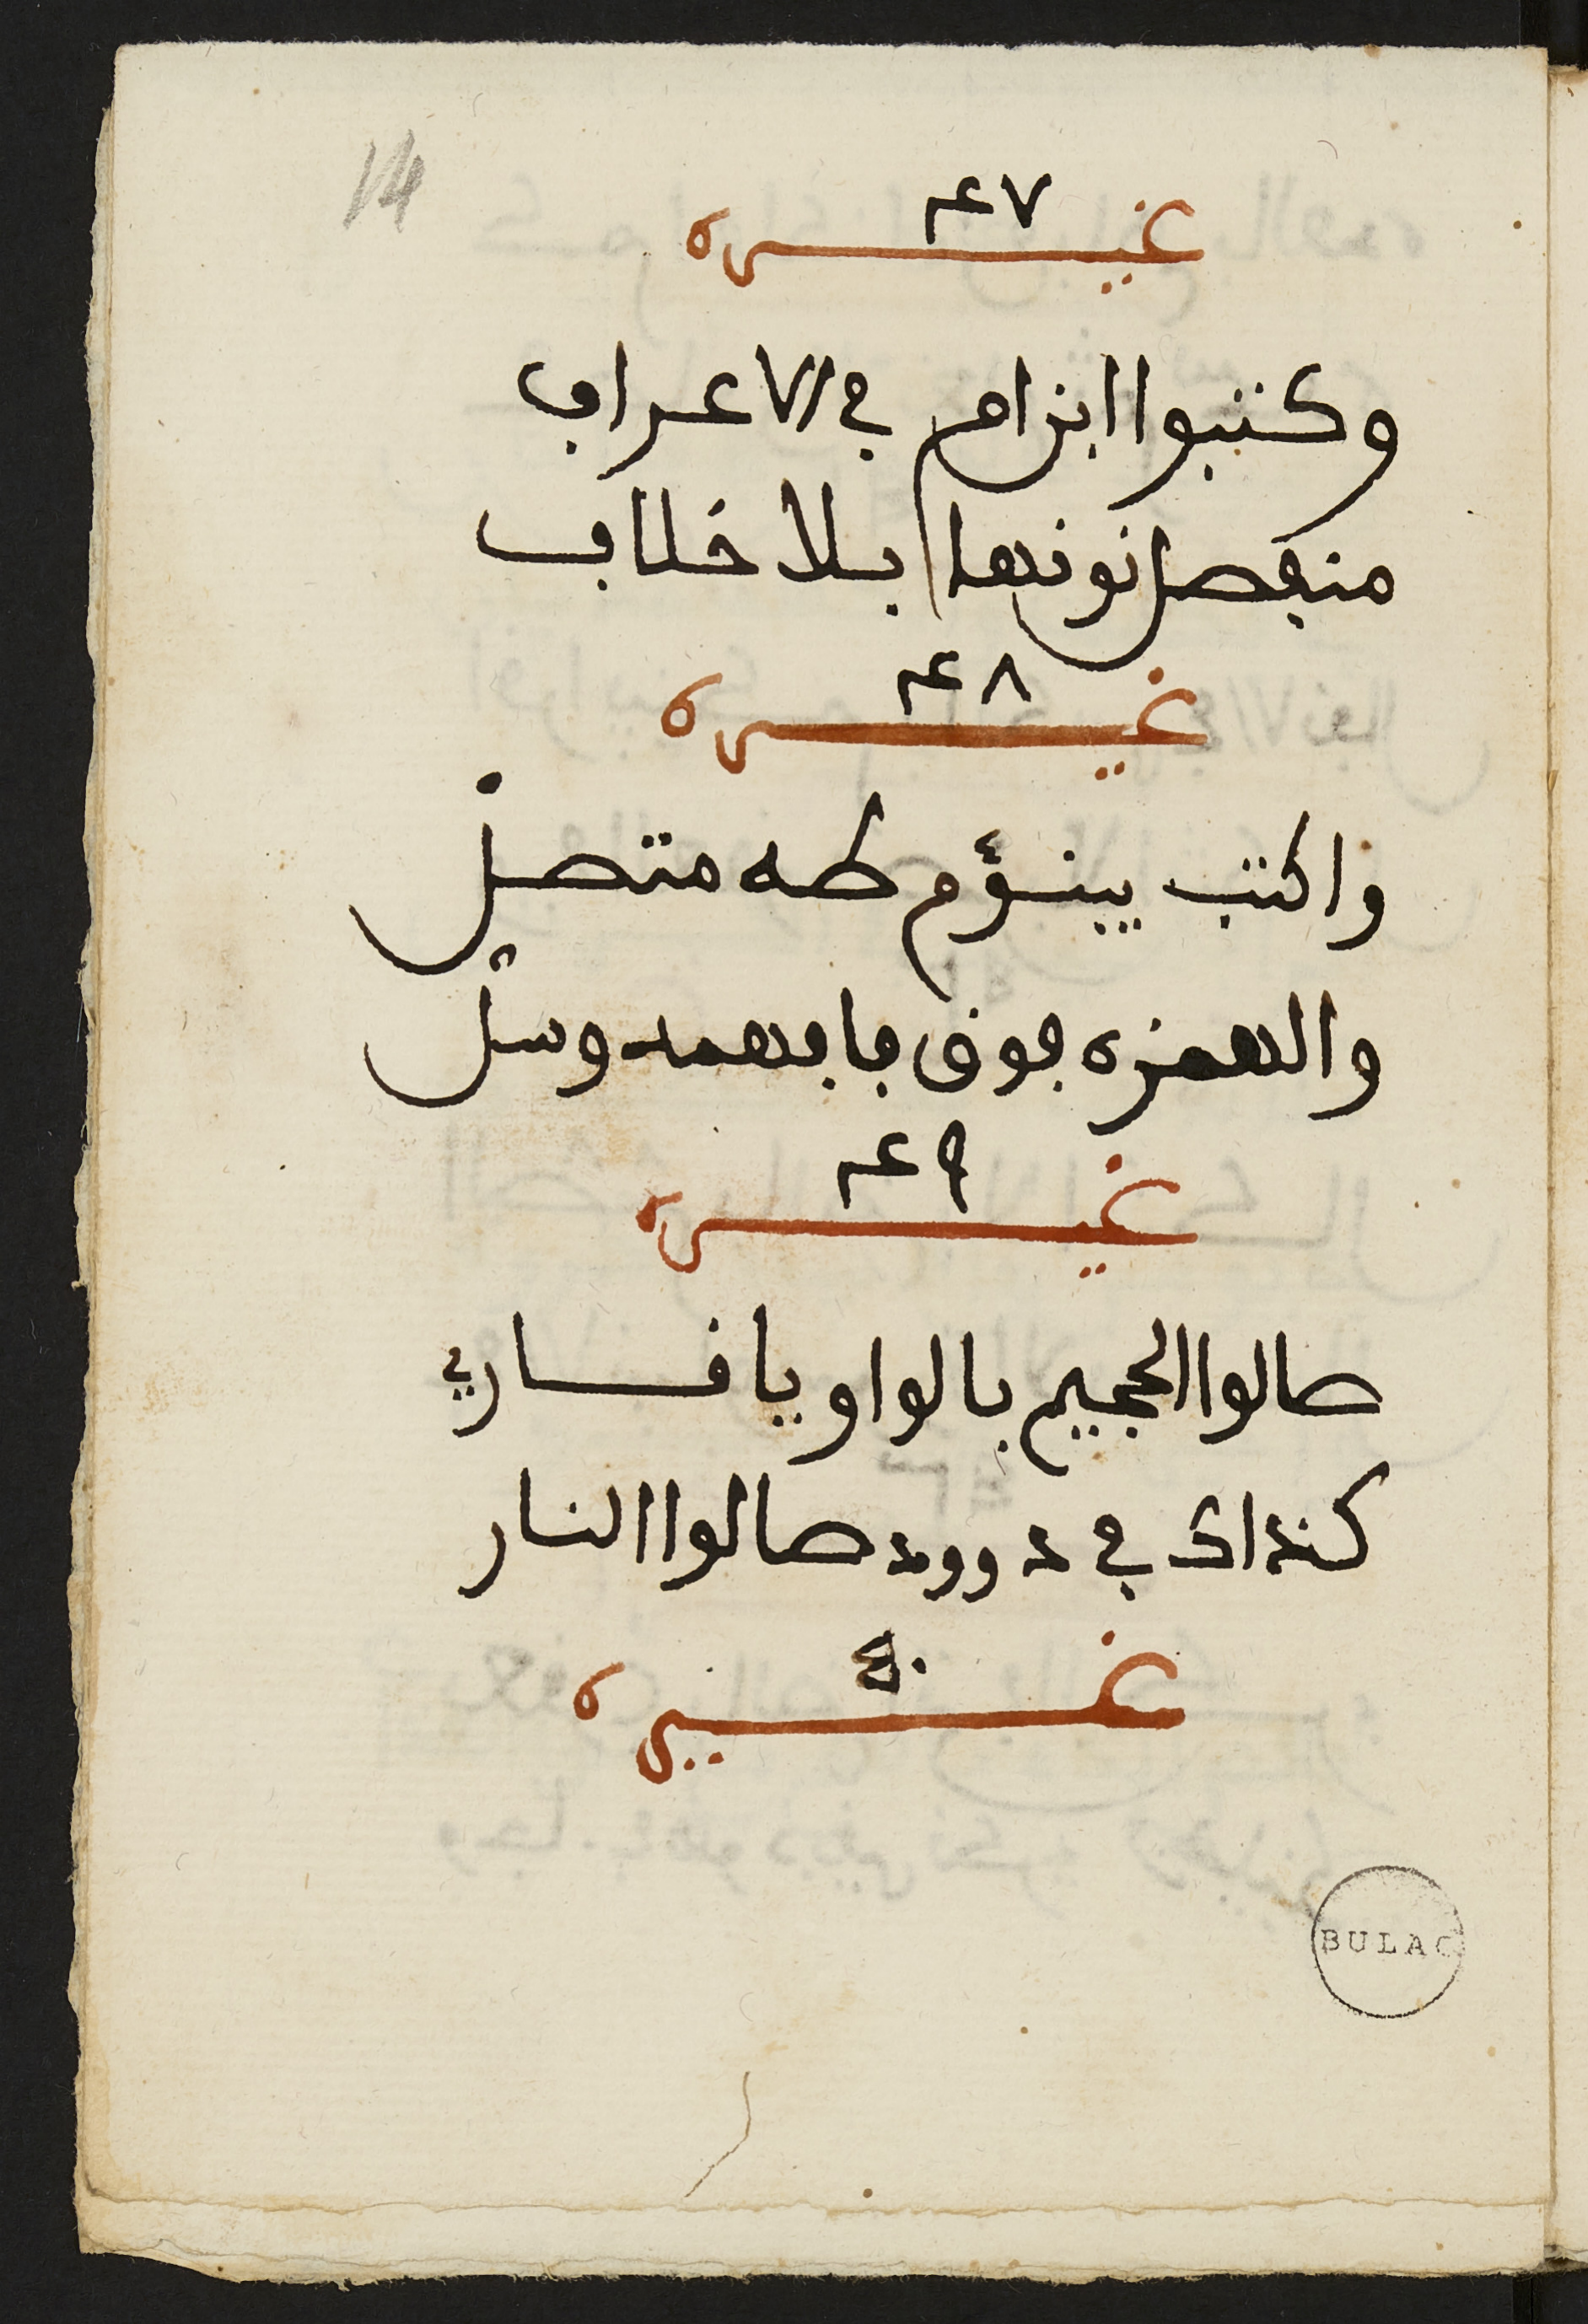 14
٤٧
غيره
وكتبوا ابن ام في الاعراف
منفصل نونها بلا خلاف
٤٨
غيره
واكتب يبنؤم طه متصل
والهمزه فوق فافهمه وسل
٤٩
غيره
صالوا الجحيم بالواو يا فساري
كذاك في داوود صالوا النار
غيره
BULAC